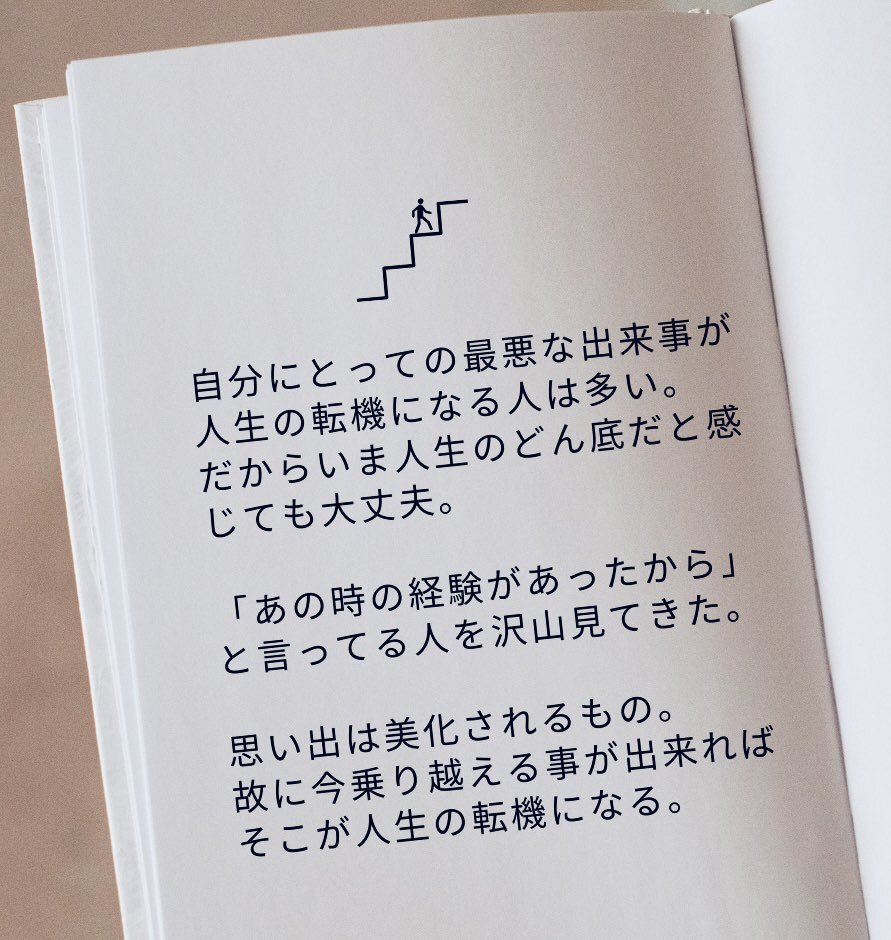 自分にとっての最悪な出来事が
人生の転機になる人は多い。
だからいま人生のどん底だと感
じても大丈夫。
「あの時の経験があったから」
と言ってる人を沢山見てきた。
思い出は美化されるもの。
故に今乗り越える事が出来れば
そこが人生の転機になる。